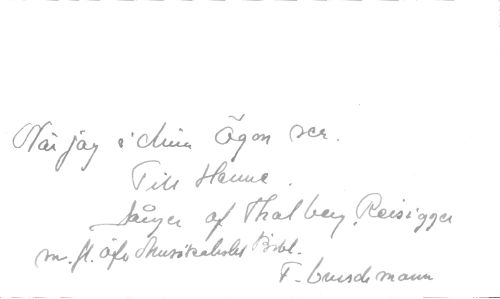 När jag i dina Ögon ser.
Till Hanne.
Sånger af Thalberg, Reissiger
m. fl. Musikaliskt Bibl.
F.